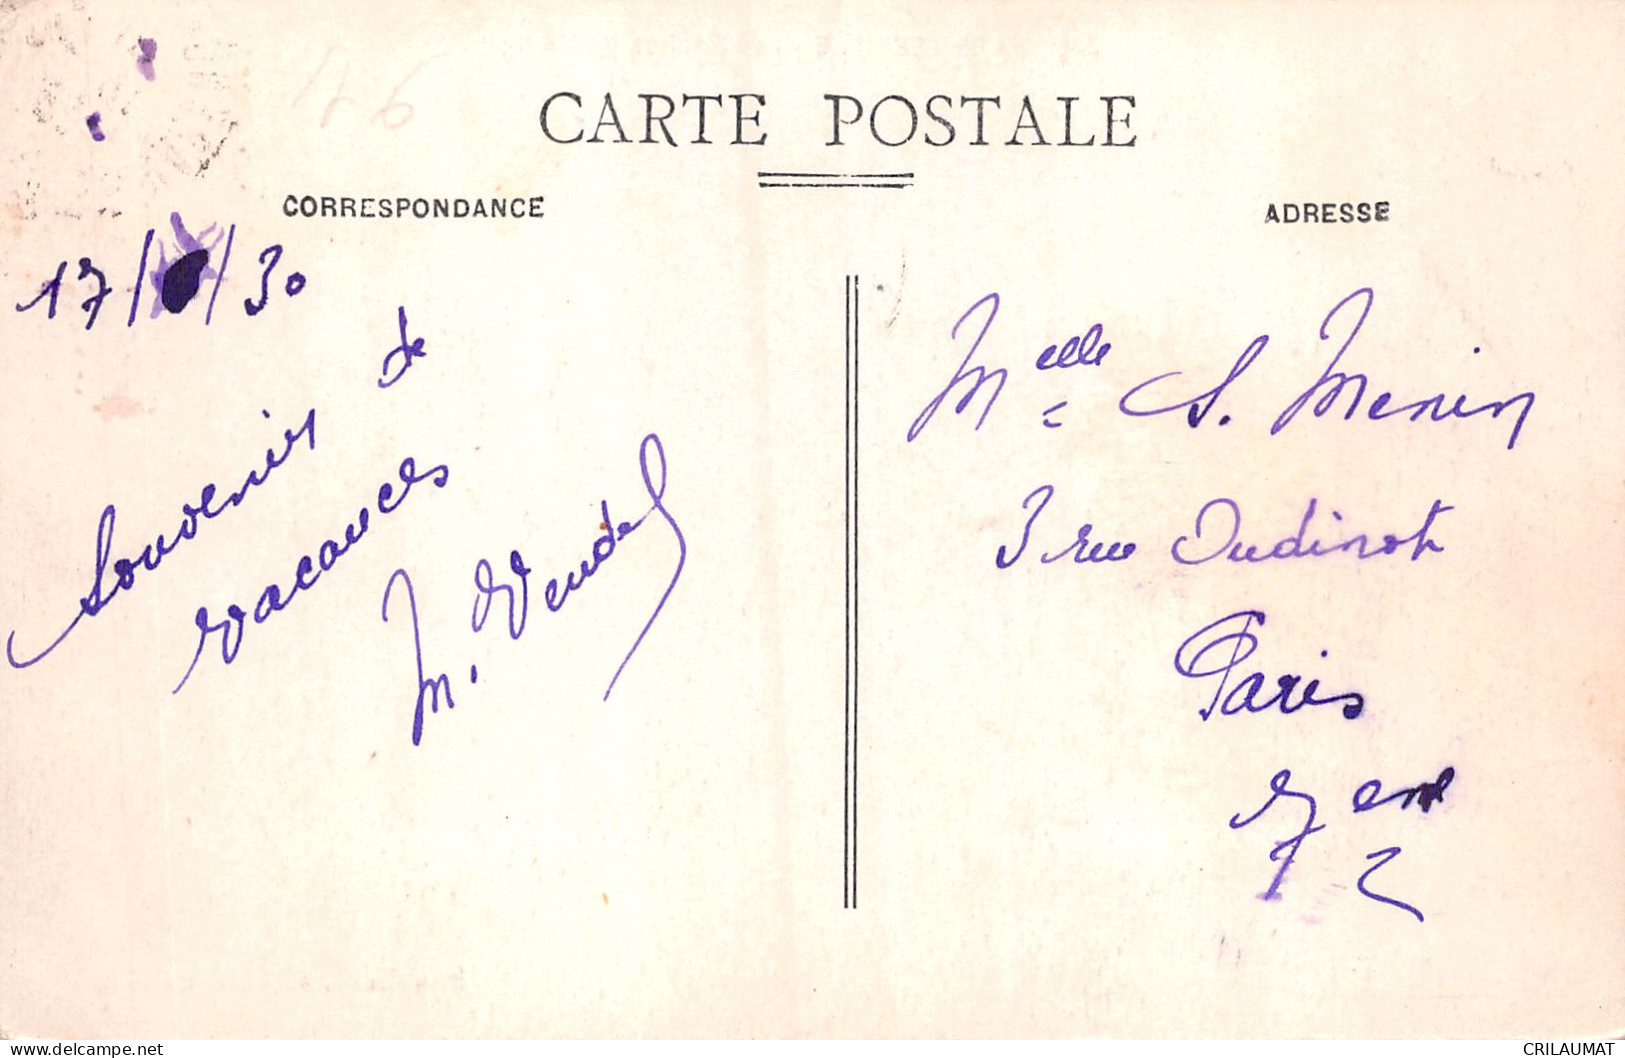 CARTE POSTALE
CORRESPONDANCE
ADRESSE
17/ /30
Souvenir de
vacances
M.
Melle S. Menin
3 rue Oudinot
Paris
7 em
www.delcampe.net
CRILAUMAT